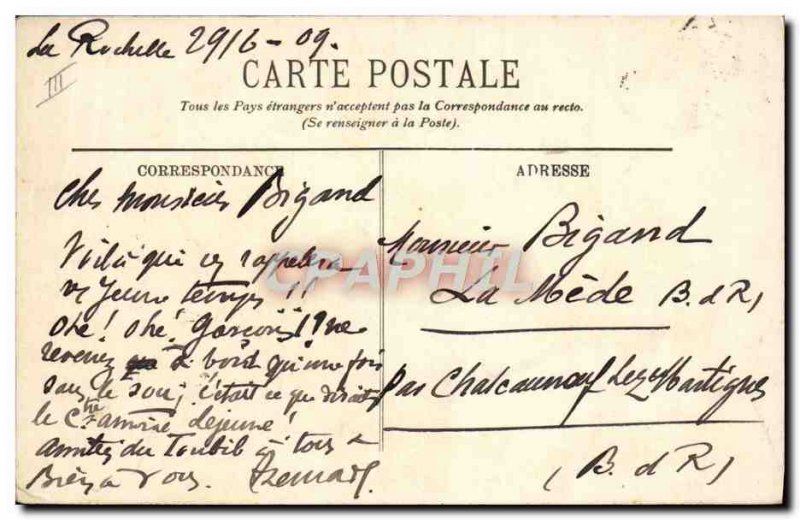 La Rochelle 29/6-09.
III
CARTE POSTALE
Tous les Pays étrangers n'acceptent pas la Correspondance au recto.
(Se renseigner à la Poste).
CORRESPONDANCE
Cher Monsieur Bigand
Voilà qui vs rappelera
vs jeune temps!!
Ohé! Ohé! Garçons! Ne
revenez à bord qu'une fois
saoul; c'était ce que disait
le Cne déjeune!
amitiés du Toubib à tous &
Bien à vous
CPAPHIL
ADRESSE
Monsieur Bigand
La Mède B. d R,
Par Chateauneuf Lez Martigues
(B. d R)